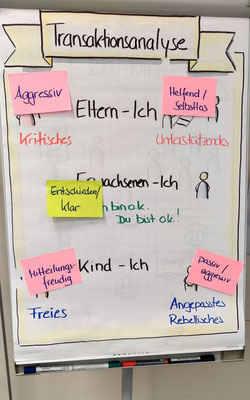 Transaktionsanalyse
Aggressiv
Helfend/
Selbstlos
Eltern-Ich
Kritisches
Unterstützendes
Erwachsenen-Ich
Entschieden/
klar
bin o.k.
Du bist ok!
Mitteilungs-
freudig
Kind-Ich
passiv/
aggressiv
Freies
Angepasstes
Rebellisches